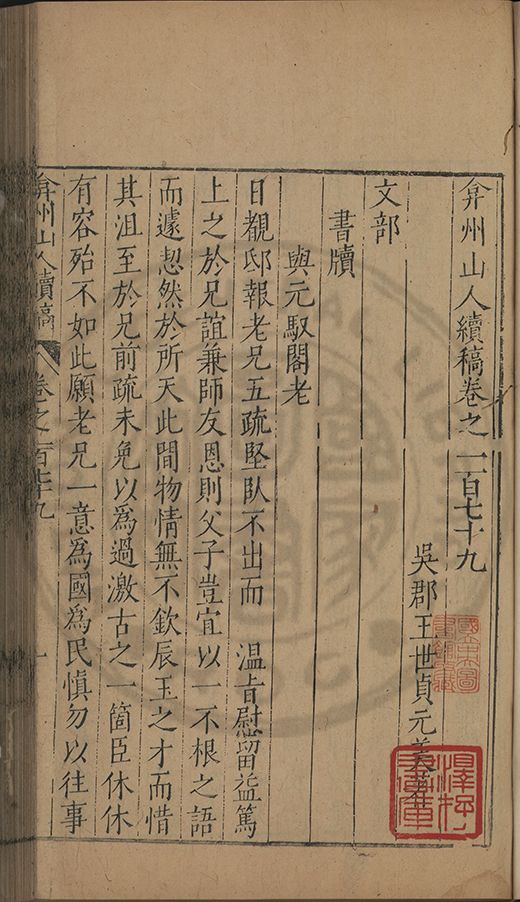 弇州山人續稿卷之一百七十九
吳郡王世貞元美著
文部
書牘
與元馭閣老
日覩邸報老兄五疏堅臥不出而 溫旨慰留益篤
上之於兄誼兼師友恩則父子豈宜以一不根之語
而遽恝然於所天此間物情無不欽辰玉之才而惜
其沮至於兄前疏未免以為過激古之一箇臣休休
有容殆不如此願老兄一意為國為民慎勿以往事
弇州山人續稿 卷之一百七十九 一